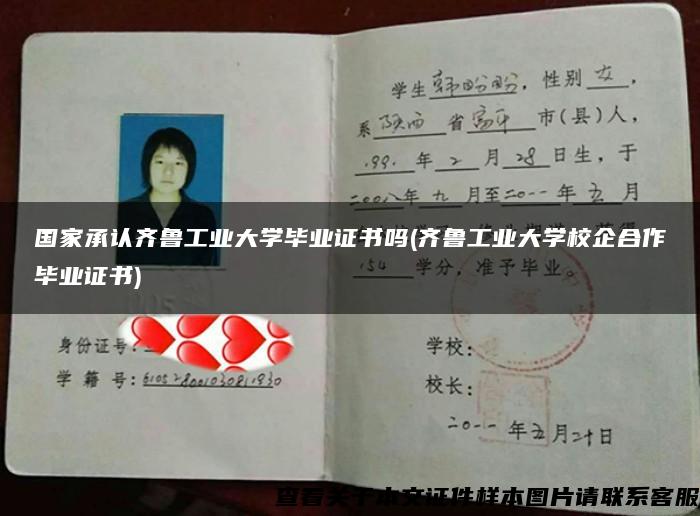 学生韩盼盼，性别女，
系陕西省富平市(县)人，
1991年2月28日生，于
二00八年九月至二0一一年五月
国家承认齐鲁工业大学毕业证书吗(齐鲁工业大学校企合作
毕业证书)
154学分，准予毕业。
身份证号:
学籍号:
学校:
校长:
二0一一年五月二十日
查看关于本文证件样本图片请联系客服